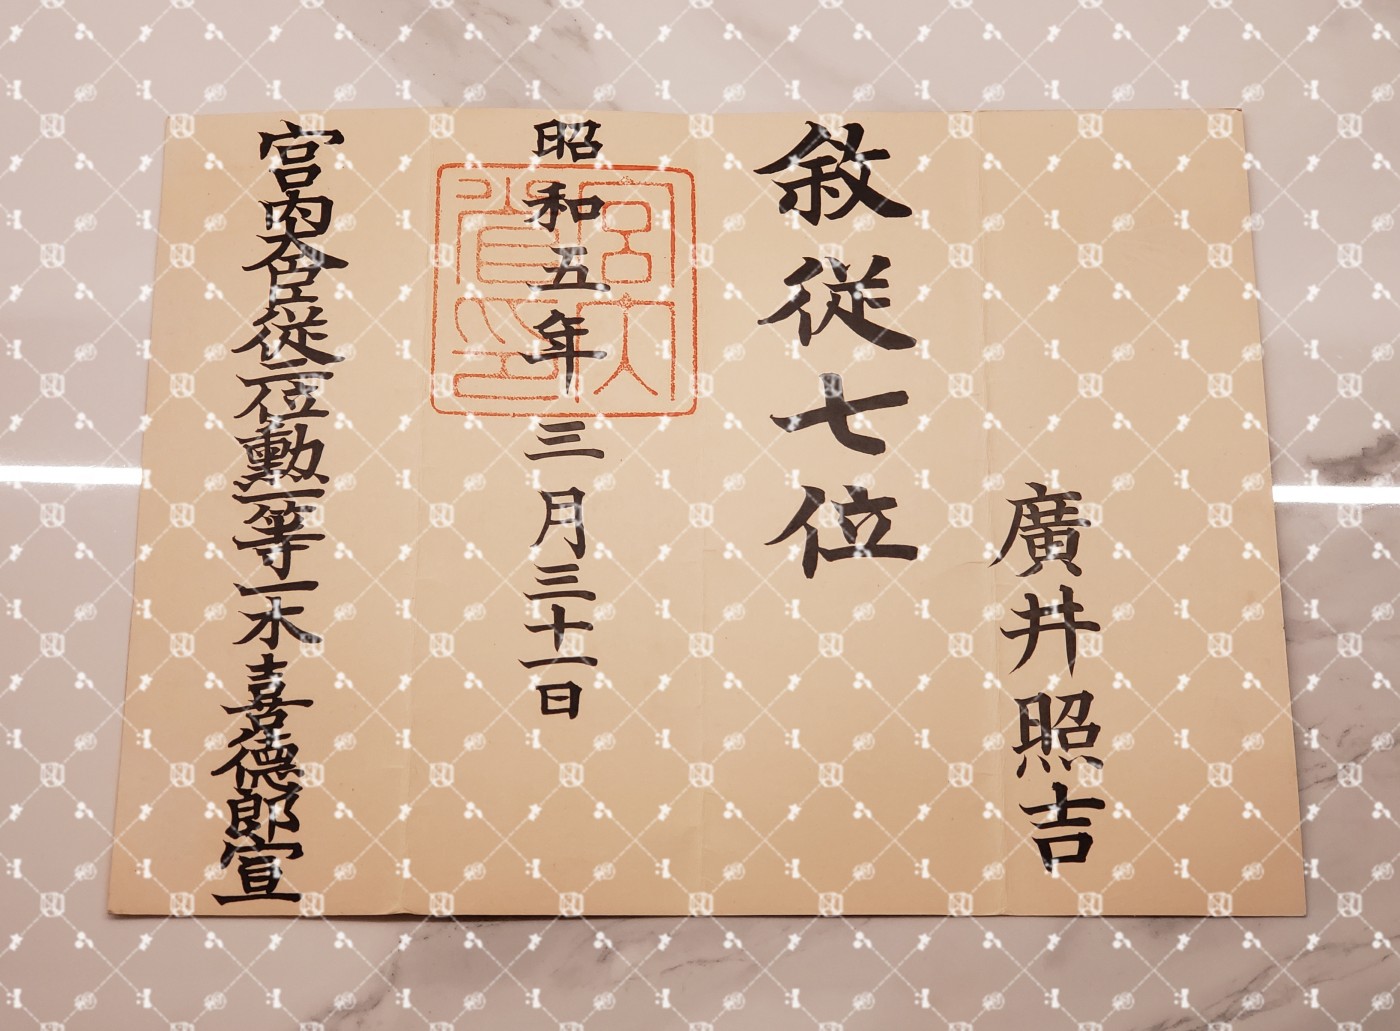 廣井照吉
敘従七位
昭和五年三月三十一日
宮内省印
宮内大臣従二位勳一等一木喜德郎宣